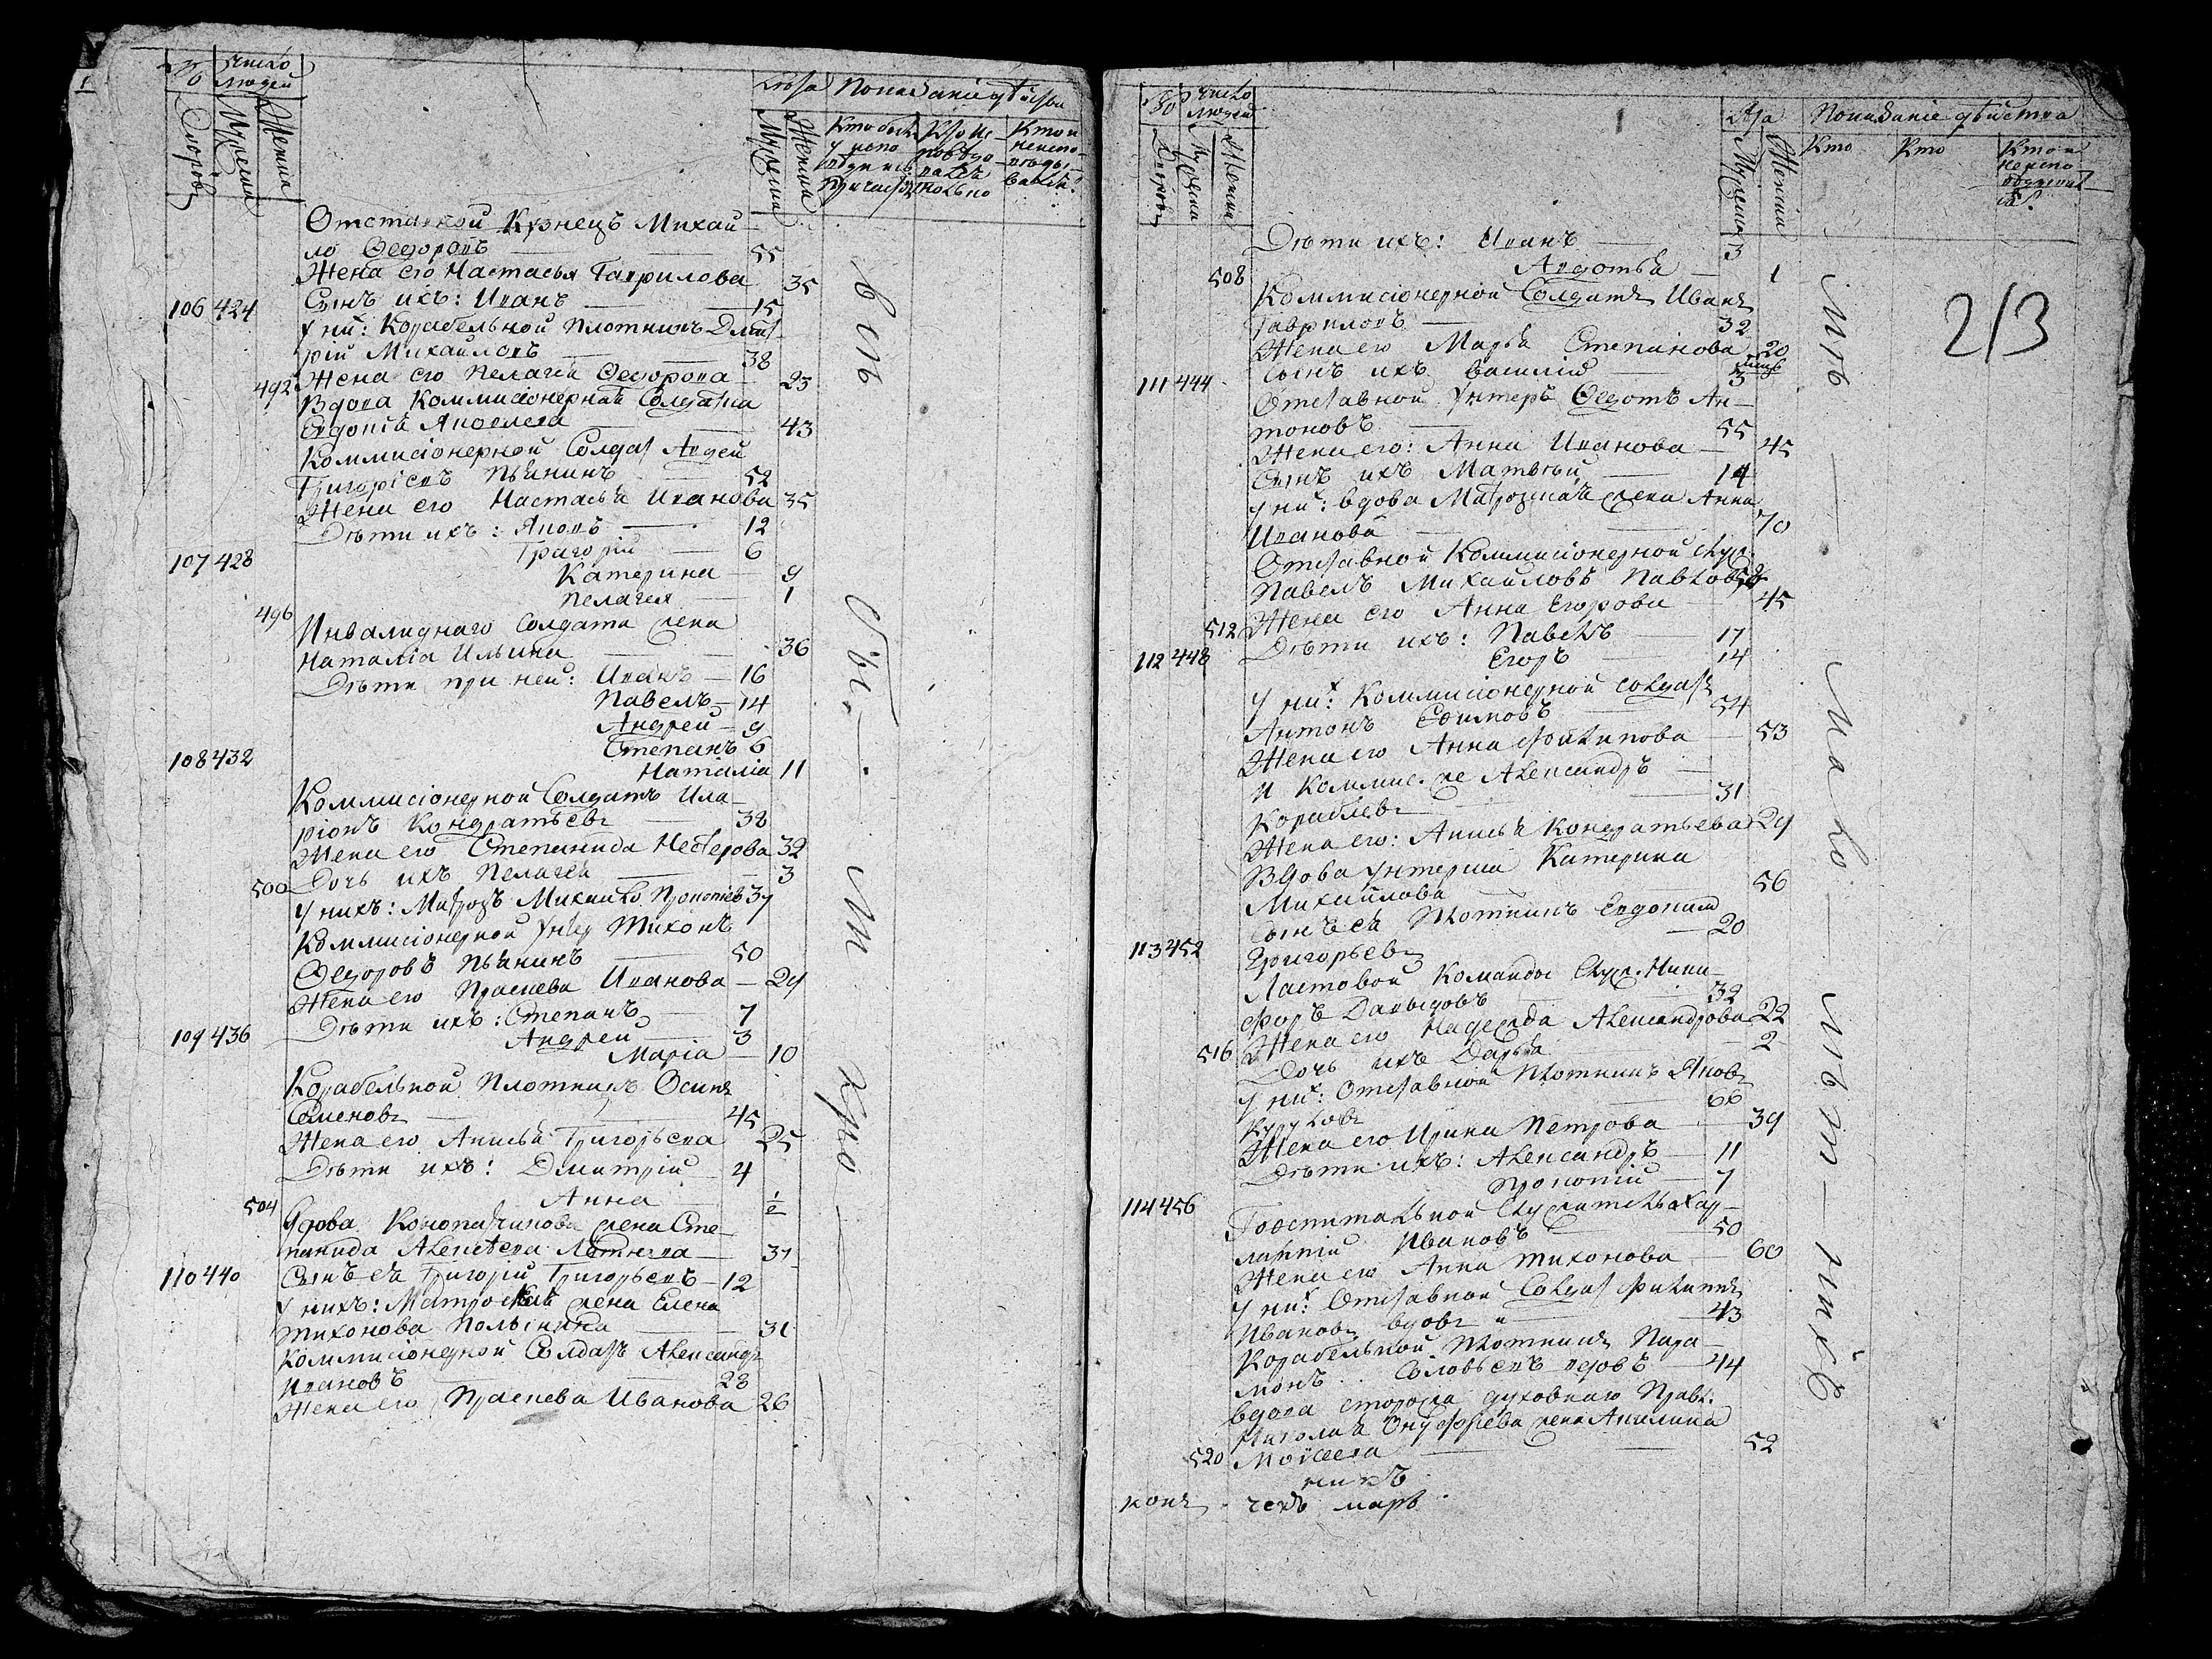 1
число
людей
Дворовъ
Мужеска
Женска
Лѣта
Показаніе дѣйства
Мужеска
Женска
Кто былъ
у испо
Кто не
Отставной Кузнецъ Михай
ло Ѳедоровъ 55
Жена его Настасья Гаврилова 35
106 424 Сынъ ихъ: Иванъ 15
У них: Корабельной Плотникъ Дмит
рій Михайловъ 38
492 Жена его Пелагея Ѳедорова 23
Вдова Коммисіонерная Солдатка
Евдокія Яковлева 43
Коммисіонерной Солдат Авдей
Григорьевъ Пьянинъ 52
Жена его Настасья Иванова 35
Дѣти ихъ: Яковъ 12
107 428 Григорій 6
Катерина 9
Пелагея 1
496
Инвалиднаго Солдата жена
Наталіа Ильина 36
Дѣти при ней: Иванъ 16
Павелъ 14
Андрей 9
Степанъ 6
108 432
Наталіа 11
Коммисіонерной Солдатъ Ила
ріонъ Кондратьевъ 38
Жена его Степанида Нестерова 32
500 Дочь ихъ Пелагея 3
У нихъ: Матрозъ Михайло Прокопіевъ 37
Коммисіонерной Унтер Тихонъ
Ѳедоровъ Пьянинъ 50
Жена его Прасковья Иванова 29
Дѣти ихъ: Степанъ 7
109 436 Андрей 3
Маріа 10
Корабельной Плотникъ Осипъ
Семеновъ 45
Жена его Анисья Григорьева 25
Дѣти ихъ: Дмитрій 4
Анна 1/2
504
Вдова Конопатчикова жена Сте
панида Алексѣева 37
110 440 Сынъ ея Григорій Григорьевъ 12
У нихъ: Матроска жена Елена
Тихонова 31
Коммисіонерной Солдатъ Александръ
Ивановъ 28
Жена его Прасковья Иванова 26
число
людей
Дворовъ
Мужеска
Женска
Лѣта
Показаніе дѣйства
Мужеска
Женска
Кто
Кто
Кто и
213
Дѣти ихъ: Иванъ 3
508 Авдотья 1
Коммисіонерной Солдатъ Иванъ
Гавриловъ 32
Жена его Марья Степанова 20
111 444 Сынъ ихъ Василій 3
Отставной Унтеръ Ѳедотъ Ан
тоновъ 55
Жена его: Анна Иванова 45
Сынъ ихъ Матвей 14
У них: вдова Матрозская жена Анна
Иванова 70
Отставной Коммисіонерной служ.
Павелъ Михайловъ Павловъ
Жена его Анна Егорова 45
512 Дѣти ихъ: Павелъ 17
112 448 Егоръ 14
У них: Коммисіонерной солдатъ
Антонъ Ефимовъ 54
Жена его Анна Филипова 53
И Коммис. же Александръ
Кораблевъ 31
Жена его: Анисья Кондратьева 29
Вдова Унтерша Катерина
Михайлова 56
Сынъ ея Плотникъ Евдокимъ
113 452 Григорьевъ 20
Ластовой Команды служ. Ники
форъ Давыдовъ 32
Жена его Надежда Александрова 22
516 Дочь ихъ Дарья 2
У них: Отставной Плотникъ Яковъ
66
Жена его Ирина Петрова 39
Дѣти ихъ: Александръ 11
Прокопій 7
114 456
Госпитальной Служитель Хар
лампій Ивановъ 50
Жена его Анна Тихонова 60
У них: Отставной Солдат Филиппъ
Ивановъ вдовъ 43
Корабельной Плотникъ Пара
монъ Соловьевъ вдовъ 44
Вдова сторожа духовнаго Правл.
Николая Онуфріева жена Акилина
520 Моисеева 52